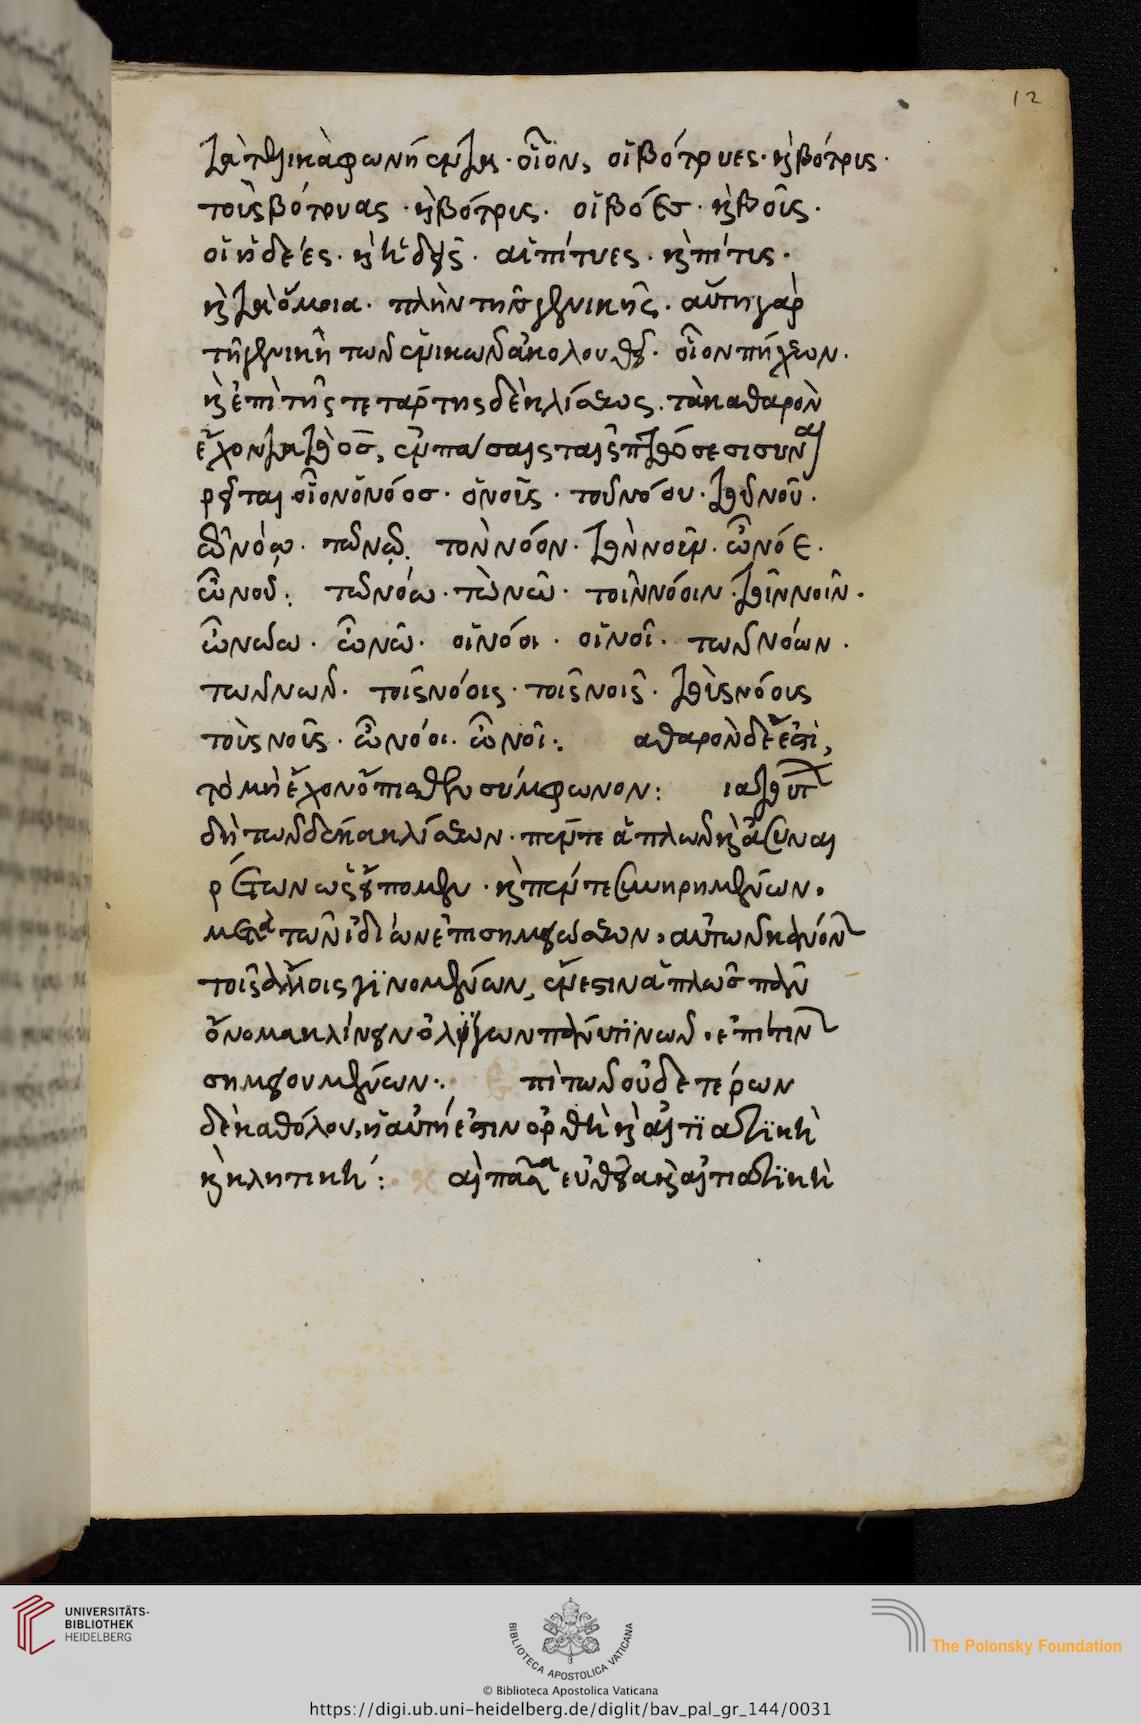 12
τα τελικὰ φωνήεντα. οἷον, οἱ βότρυες. καὶ βότρυς.
τοὺς βότρυας. καὶ βότρυς. οἱ βόες. καὶ βοῦς.
οἱ ἡδέες. καὶ ἡδεῖς. αἱ πίτυες. καὶ πίτυς.
καὶ τὰ ὅμοια. πλὴν τῆς γενικῆς. αὕτη γὰρ
τῇ γενικῇ τῶν ἑνικῶν ἀκολουθεῖ. οἷον πήχεων.
καὶ ἐπὶ τῆς τετάρτης δὲ κλίσεως. τὰ καθαρὸν
ἔχοντα τὸ ος, ἐν πάσαις ταῖς πτώσεσι συναι
ροῦται οἷον ὁ νόος. ὁ νοῦς. τοῦ νόου. τοῦ νοῦ.
τῷ νόῳ. τῷ νῷ. τὸν νόον. τὸν νοῦν. ὦ νόε.
ὦ νοῦ: τὼ νόω. τὼ νῶ. τοῖν νόοιν. τοῖν νοῖν.
ὦ νόω. ὦ νῶ. οἱ νόοι. οἱ νοῖ. τῶν νόων.
τῶν νῶν. τοῖς νόοις. τοῖς νοῖς. τοὺς νόους
τοὺς νοῦς. ὦ νόοι. ὦ νοῖ: αθαρὸν δέ ἐστι,
τὸ μὴ ἔχον ὄπισθεν σύμφωνον: ιὰ τοῦτο
δὴ τῶν δέκα κλίσεων. πέντε ἁπλῶν καὶ ἀσυναι
ρέτων ὡς εἴπομεν. καὶ πέντε συνῃρημένων.
μετὰ τῶν ἰδίων ἐπισημειώσεων, αὐτῶν κανόνων
τοῖς ὅλοις γϊνομένων, ἔνεστιν ἁπλῶς πᾶν
ὄνομα κλίνειν ὀλίγων πάνυ τϊνῶν. ἐπὶ τινων
σημειουμένων: πὶ τῶν οὐδετέρων
δὲ καθόλου, ἡ αὐτή ἐστιν ὀρθὴ καὶ αἰτϊατϊκὴ
καὶ κλητική: αἱ πᾶσα εὐθεῖα καὶ αἰτιατϊκὴ
UNIVERSITÄTS-
BIBLIOTHEK
HEIDELBERG
BIBLIOTECA APOSTOLICA VATICANA
The Polonsky Foundation
© Biblioteca Apostolica Vaticana
https://digi.ub.uni-heidelberg.de/diglit/bav_pal_gr_144/0031